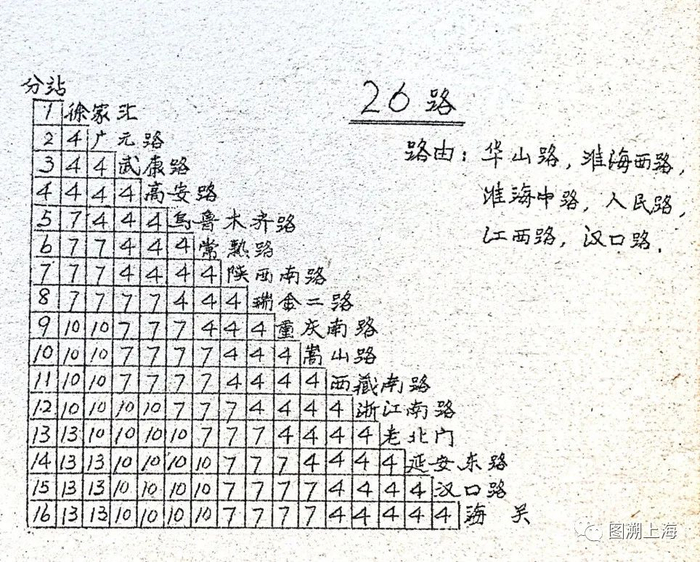 26路
分站
路由：华山路，淮海西路，
淮海中路，人民路，
江西路，汉口路．
1 徐家汇
2 4 广元路
3 4 4 武康路
4 4 4 4 高安路
5 7 4 4 4 乌鲁木齐路
6 7 7 4 4 4 常熟路
7 7 7 4 4 4 4 陕西南路
8 7 7 7 7 4 4 4 瑞金二路
9 10 10 7 7 7 4 4 4 重庆南路
10 10 10 7 7 7 7 4 4 4 嵩山路
11 10 10 7 7 7 7 4 4 4 4 西藏南路
12 10 10 10 10 7 7 7 4 4 4 4 浙江南路
13 13 10 10 10 10 7 7 7 4 4 4 4 老北门
14 13 13 10 10 10 10 7 7 7 4 4 4 4 延安东路
15 13 13 10 10 10 10 7 7 7 7 4 4 4 4 汉口路
16 13 13 10 10 10 10 7 7 7 7 4 4 4 4 4 海关
图溯上海